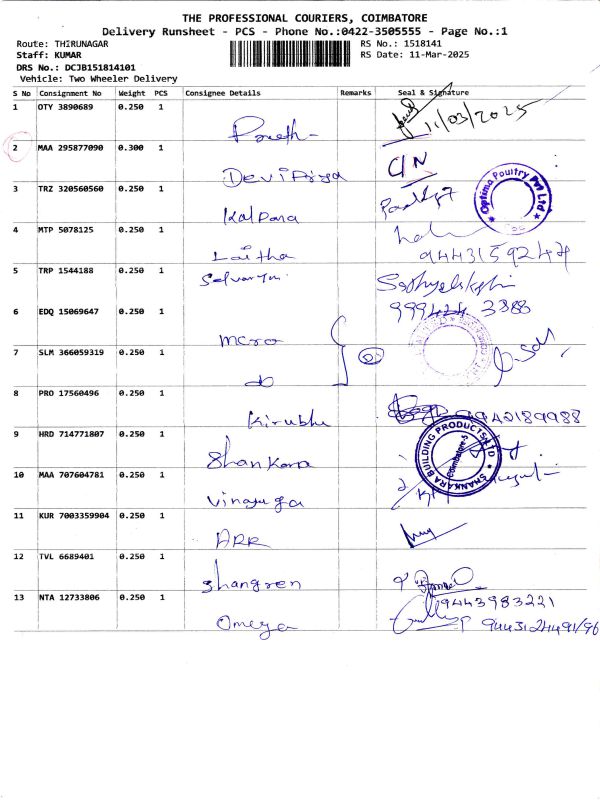 THE PROFESSIONAL COURIERS, COIMBATORE
Delivery Runsheet - PCS - Phone No.:0422-3505555 - Page No.:1
Route: THIRUNAGAR
RS No.: 1518141
Staff: KUMAR
RS Date: 11-Mar-2025
DRS No.: DCJB151814101
Vehicle: Two Wheeler Delivery
S No Consignment No Weight PCS Consignee Details Remarks Seal & Signature
1 OTY 3890689 0.250 1
11/03/2025
2 MAA 295877090 0.300 1
Devipriya C/N
3 TRZ 320560560 0.250 1
Kalpana
Optima Poultry Pvt Ltd
4 MTP 5078125 0.250 1
Lalitha
5 TRP 1544188 0.250 1
6 EDQ 15069647 0.250 1
Micro
7 SLM 366059319 0.250 1
8 PRO 17560496 0.250 1
Kirubha 9942189988
9 HRD 714771807 0.250 1
Shankara
SHANKARA BUILDING PRODUCTS LTD
Coimbatore-5
10 MAA 707604781 0.250 1
Vinayaga
11 KUR 7003359904 0.250 1
ARR
12 TVL 6689401 0.250 1
9443983221
13 NTA 12733806 0.250 1
Omega 9443124491/96